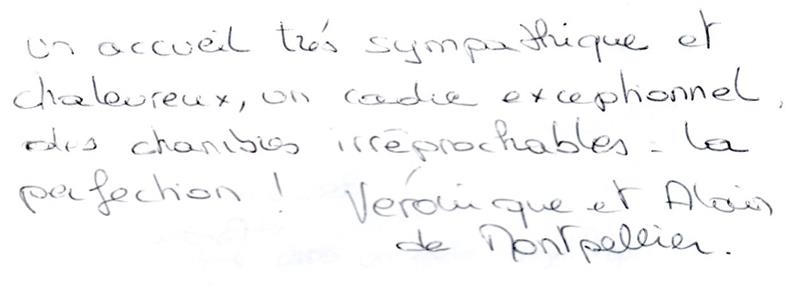 un accueil très sympathique et
chaleureux, un cadre exceptionnel,
des chambres irréprochables - la
perfection ! Véronique et Alain
de Montpellier.